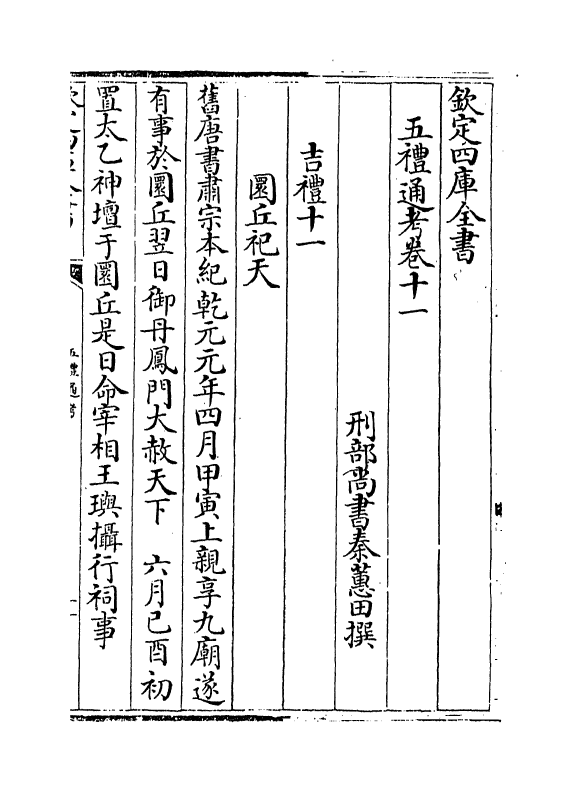 欽定四庫全書
五禮通考卷十一
刑部尚書秦蕙田撰
吉禮十一
圜丘祀天
舊唐書肅宗本紀乾元元年四月甲寅上親享九廟遂
有事於圜丘翌日御丹鳳門大赦天下　六月已酉初
置太乙神壇于圜丘是日命宰相王璵攝行祠事
五禮通考